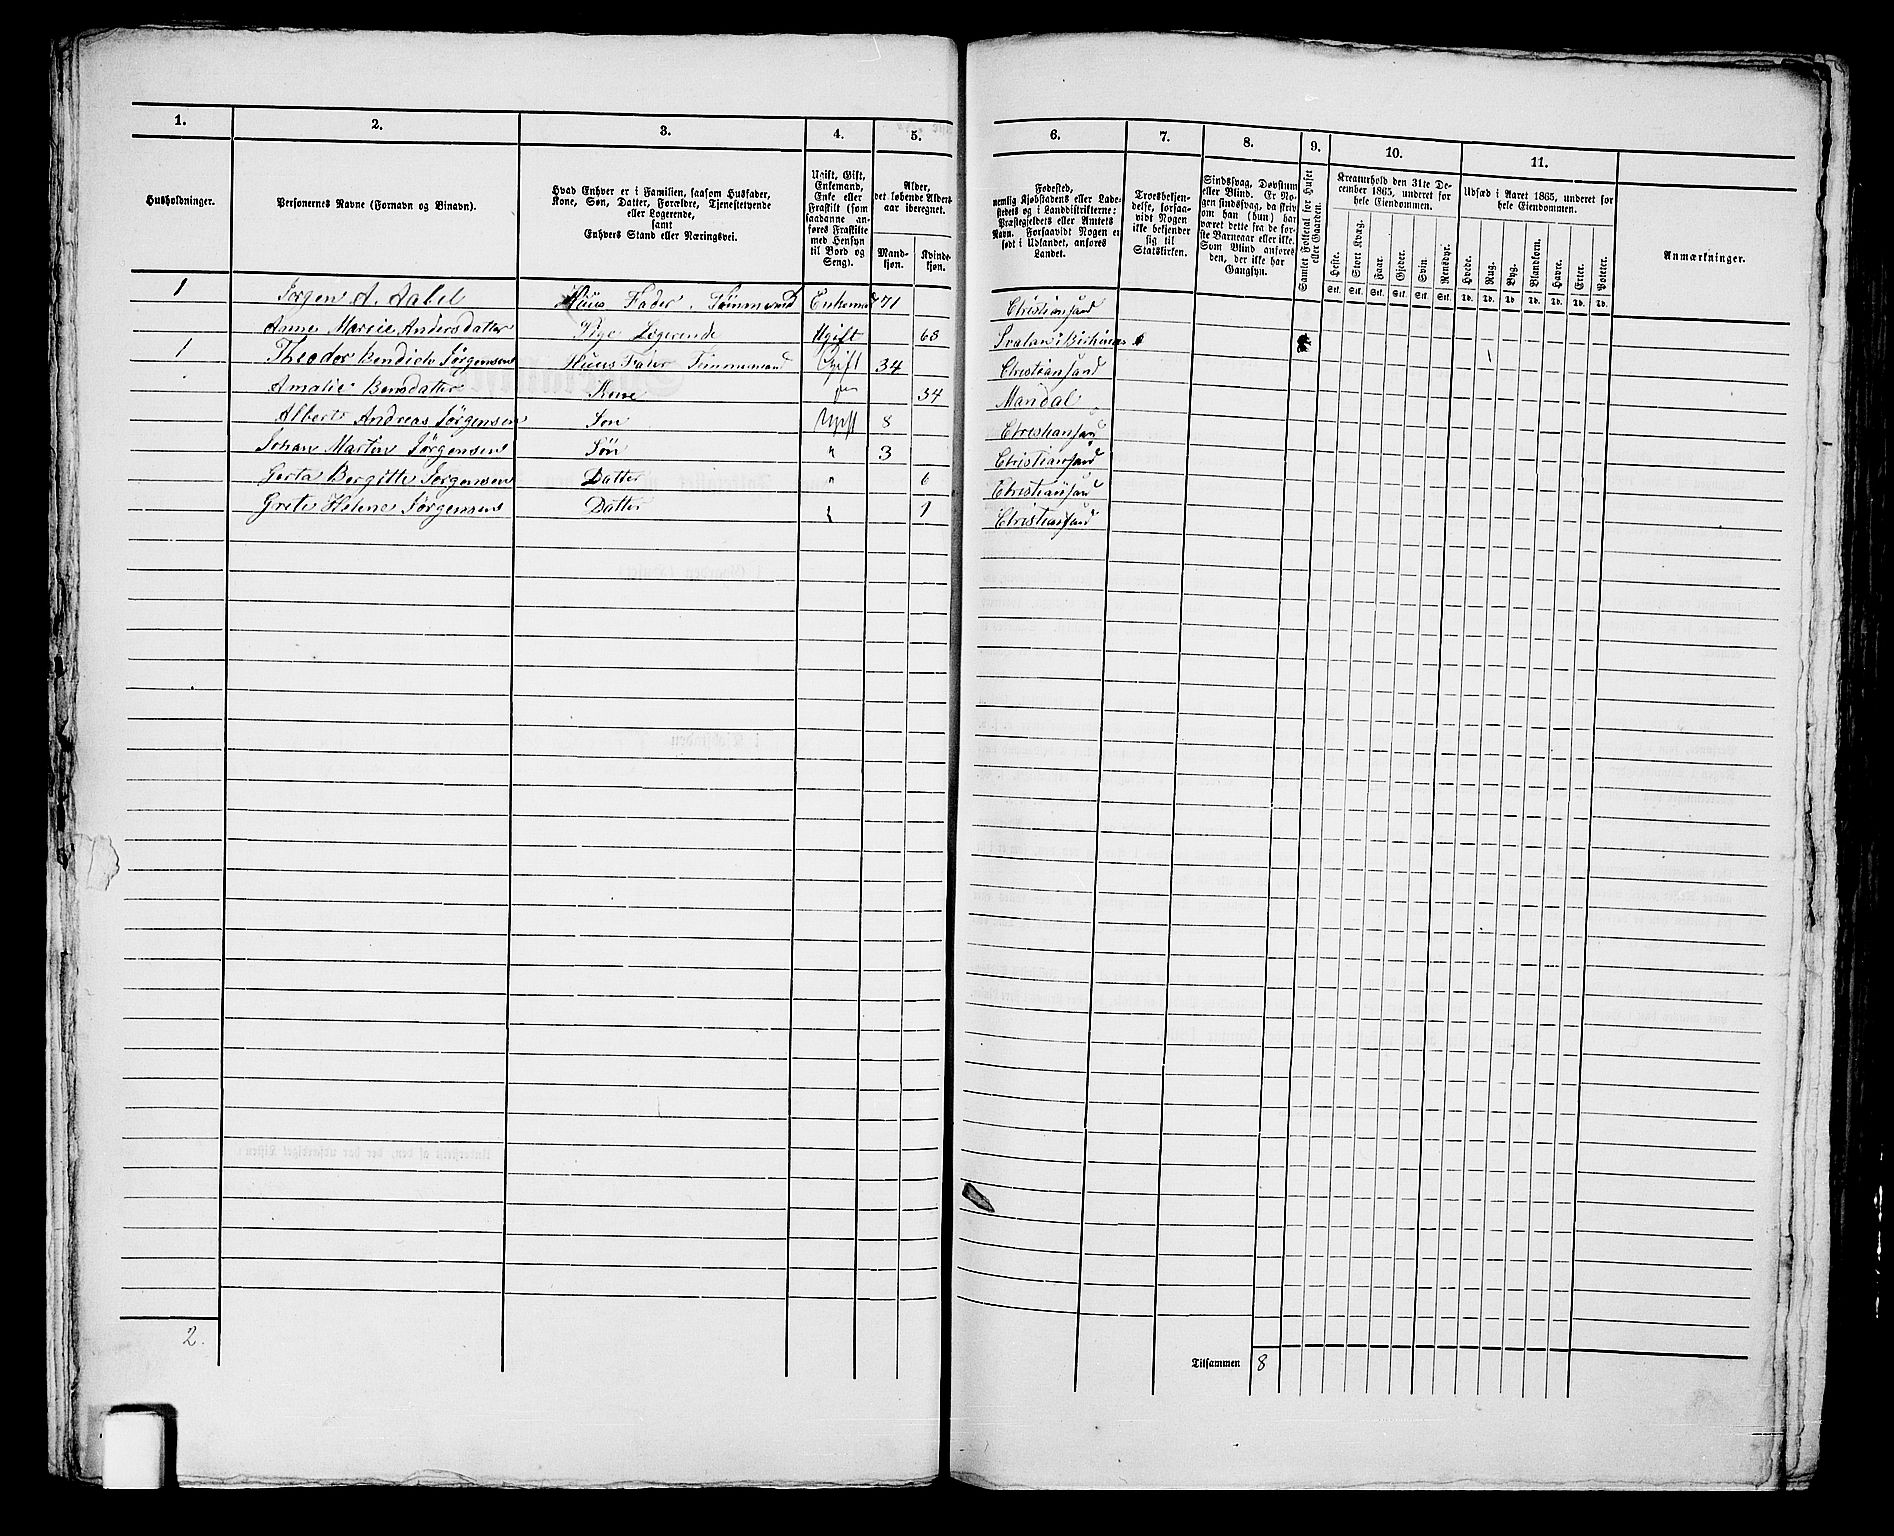 1. 2. 3. 4. 5. 6. 7. 8. 9. 10. 11.
Husholdninger.
Personernes Navne (Fornavn og Binavn).
Hvad Enhver er i Familien, saasom Husfader,
Kone, Søn, Datter, Forældre, Tjenestetyende
eller Logerende,
samt
Enhvers Stand eller Næringsvei.
Ugift, Gift,
Enkemand,
Enke eller
Fraskilt (som
saadanne an-
føres Fraskilte
med Hensyn
til Bord og
Seng).
Alder,
det løbende Alders-
aar iberegnet.
Mand-
kjøn.
Kvinde-
kjøn.
Fødested,
nemlig Kjøbstadens eller Lade-
stedets og i Landdistrikterne:
Præstegjeldets eller Amtets
Navn. Forsaavidt Nogen er
født i Udlandet, anføres
Landet.
Troesbekjen-
delse, forsaa-
vidt Nogen
ikke bekjender
sig til
Statskirken.
Sindssvag, Døvstum
eller Blind. Er No-
gen sindssvag, da skriv
om han (hun) har
været dette fra de før-
ste Barneaar eller ikke.
Som Blind anføres
den, der ikke har
Gangsyn.
Samlet Folketal for Huset
eller Gaarden.
Kreaturhold den 31te De-
cember 1865, underet for
hele Eiendommen.
Heste. Stort Kvæg. Faar. Gjeder. Svin. Rensdyr.
Stk. Stk. Stk. Stk. Stk. Stk.
Udsæd i Aaret 1865, underet for
hele Eiendommen.
Hvede. Rug. Byg. Blandkorn. Havre. Erter. Poteter.
Td. Td. Td. Td. Td. Td. Td.
Anmærkninger.
1 Jørgen A. Aabel Huus Fader. Tømmermand Enkemand 71 Christiansand
Anne Marie Andersdatter Pige Logerende Ugift 68
1 Theodor Bendick Jørgensen Huus Fader Timmermand Gift 34 Christiansand
Amalie Bensdatter Kone 34 Mandal
Albert Andreas Jørgensen Søn Ugift 8 Christiansand
Johan Martin Jørgensen Søn " 3 Christiansand
Berta Bergitte Jørgensen Datter " 6 Christiansand
Grete Helene Jørgensens Datter 1 Christiansand
2.
Tilsammen 8